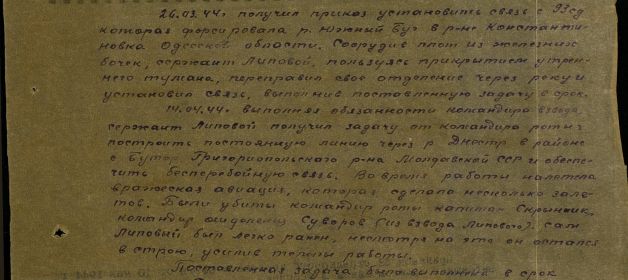 26.03.44г получил приказ установить связь с 93сд
которая форсировала р. Южный Буг в р-не Константи-
новка Одесской области. Соорудив плот из железных
бочек, сержант Липовой, пользуясь прикрытием утрен-
него тумана, переправил свое отделение через реку и
установил связь, выполнив поставленную задачу в срок.
14.04.44г выполняя обязанности командира взвода,
сержант Липовой получил задачу от командира роты
построить постоянную линию через р Днестр в районе
с Бутор Григориопольского р-на Молдавской ССР и обеспе-
чить бесперебойную связь. Во время работы налетела
вражеская авиация, которая сделала несколько зале-
тов. Были убиты командир роты капитан
командир отделения Суворов (из взвода Липового). Сам
Липовый был легко ранен, несмотря на это он остался
в строю, усилив темпы работы.
Поставленная задача была выполнена в срок